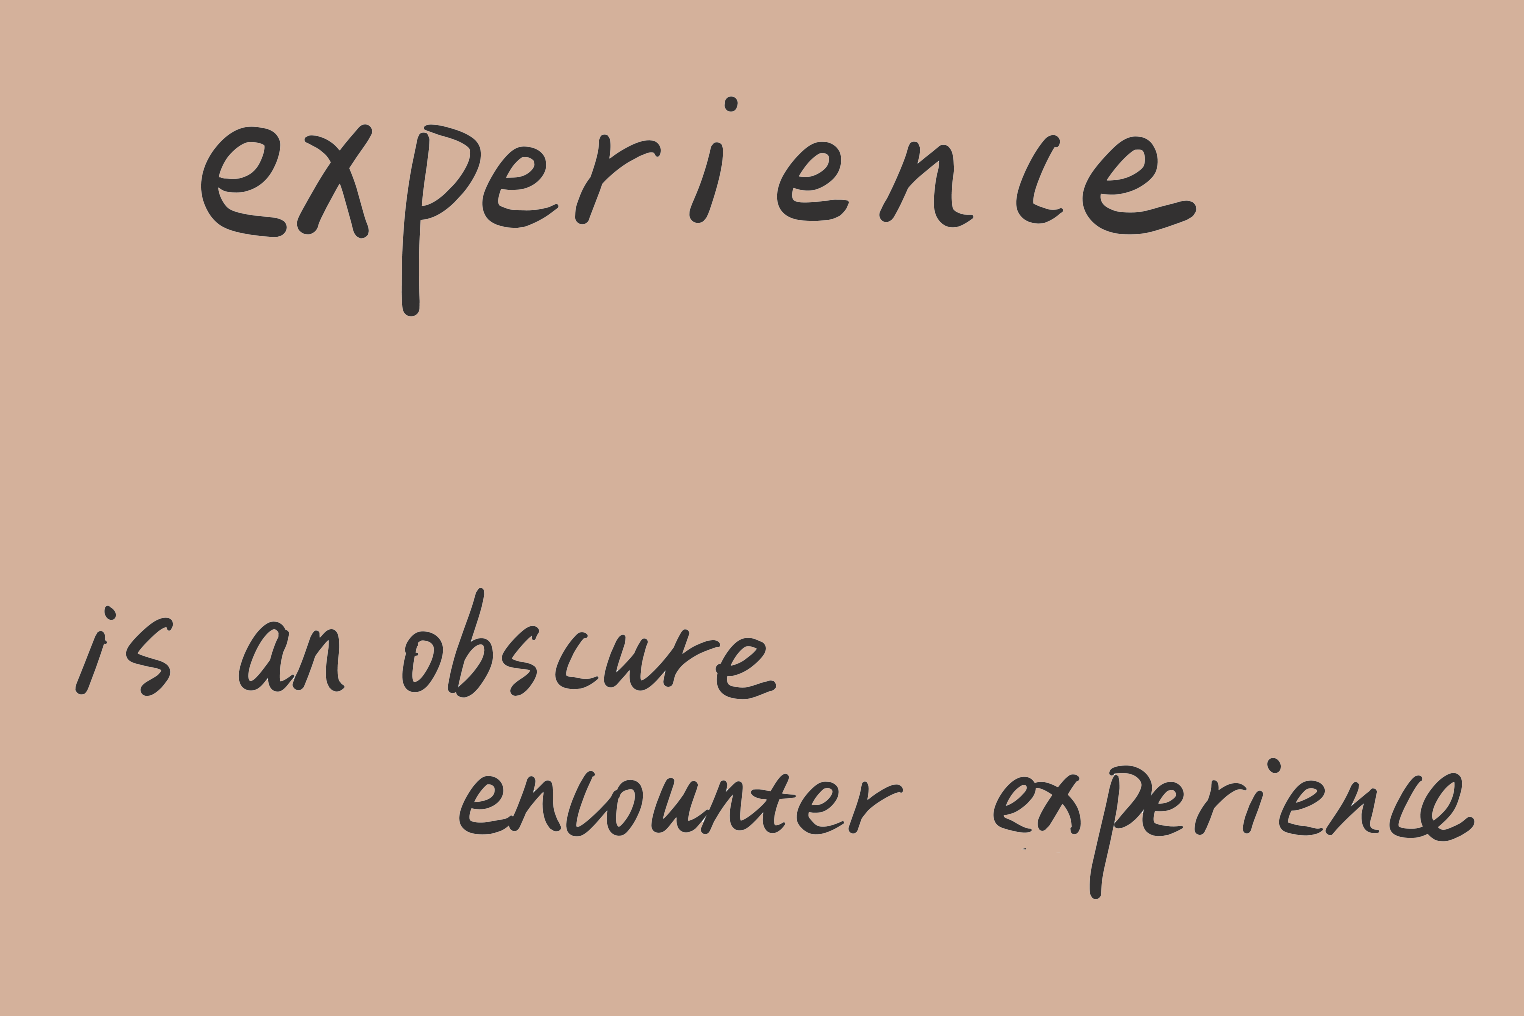 experience
is an obscure
encounter experience